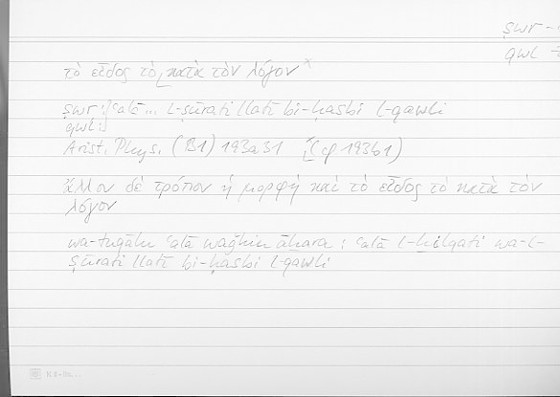 ṣwr
qwl
τὸ εἶδος τὸ κατὰ τὸν λόγον ×
ṣwr: ʿalā ... l-ṣūrati llatī bi-ḥasbi l-qawli
qwl:
Arist. Phys. (B1) 193a31 (cf 193b1)
ἄλλον δὲ τρόπον ἡ μορφὴ καὶ τὸ εἶδος τὸ κατὰ τὸν
λόγον
wa-tuqālu ʿalā waǧhin āḫara: ʿalā l-ḫilqati wa-l-
ṣūrati llatī bi-ḥasbi l-qawli